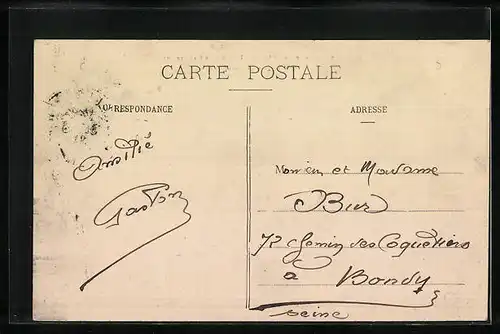 CARTE POSTALE
CORRESPONDANCE
ADRESSE
Amitié
Gaston
Monsieur et Madame
Bur
72 chemin des Coquetiers
à Bondy
Seine